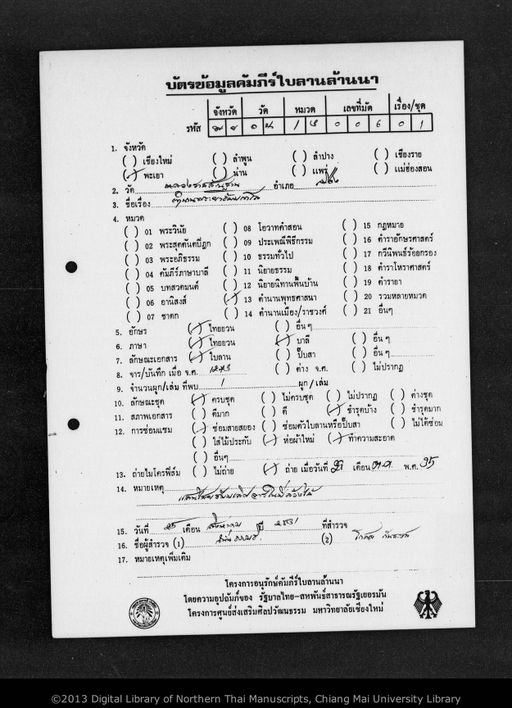 บัตรข้อมูลคัมภีร์ใบลานล้านนา
จังหวัด วัด หมวด เลขที่มัด เรื่อง/ชุด
รหัส 1 3 0 0 6 0 1
1. จังหวัด
( ) เชียงใหม่ ( ) ลำพูน ( ) ลำปาง ( ) เชียงราย
(/) พะเยา ( ) น่าน ( ) แพร่ ( ) แม่ฮ่องสอน
2. วัด อำเภอ
3. ชื่อเรื่อง
4. หมวด
( ) 01 พระวินัย ( ) 08 โอวาทคำสอน ( ) 15 กฎหมาย
( ) 02 พระสุตตันตปิฎก ( ) 09 ประเพณีพิธีกรรม ( ) 16 ตำราอักษรศาสตร์
( ) 03 พระอภิธรรม ( ) 10 ธรรมทั่วไป ( ) 17 กวีนิพนธ์ร้อยกรอง
( ) 04 คัมภีร์ภาษาบาลี ( ) 11 นิยายธรรม ( ) 18 ตำราโหราศาสตร์
( ) 05 บทสวดมนต์ ( ) 12 นิยายนิทานพื้นบ้าน ( ) 19 ตำรายา
( ) 06 อานิสงส์ (/) 13 ตำนานพุทธศาสนา ( ) 20 รวมหลายหมวด
( ) 07 ชาดก ( ) 14 ตำนานเมือง/ราชวงศ์ ( ) 21 อื่นๆ
5. อักษร (/) ไทยยวน ( ) อื่น ๆ
6. ภาษา (/) ไทยยวน (/) บาลี ( ) อื่น ๆ
7. ลักษณะเอกสาร (/) ใบลาน ( ) ปั๊บสา ( ) อื่น ๆ
8. จาร/บันทึก เมื่อ จ.ศ. ( ) ค่าง จ.ศ. ( ) ไม่ปรากฏ
9. จำนวนผูก/เล่ม ที่พบ 1 ผูก / เล่ม
10. ลักษณะชุด (/) ครบชุด ( ) ไม่ครบชุด ( ) ไม่ปรากฏ ( ) ค่างชุด
11. สภาพเอกสาร ( ) ดีมาก ( ) ดี (/) ชำรุดบ้าง ( ) ชำรุดมาก
12. การซ่อมแซม (/) ซ่อมสายสยอง ( ) ซ่อมตัวใบลานหรือปั๊บสา ( ) ไม่ได้ซ่อม
( ) ใส่ไม้ประกับ (/) ห่อผ้าใหม่ (/) ทำความสะอาด
( ) อื่นๆ
13. ถ่ายไมโครฟิล์ม ( ) ไม่ถ่าย (/) ถ่าย เมื่อวันที่ เดือน พ.ศ. 35
14. หมายเหตุ
15. วันที่ 25 เดือน ปี 2531 ที่สำรวจ
16. ชื่อผู้สำรวจ (1) (2)
17. หมายเหตุเพิ่มเติม
โครงการอนุรักษ์คัมภีร์ใบลานล้านนา
โดยความอุปถัมภ์ของ รัฐบาลไทย-สหพันธ์สาธารณรัฐเยอรมัน
โครงการศูนย์ส่งเสริมศิลปวัฒนธรรม มหาวิทยาลัยเชียงใหม่
©2013 Digital Library of Northern Thai Manuscripts, Chiang Mai University Library